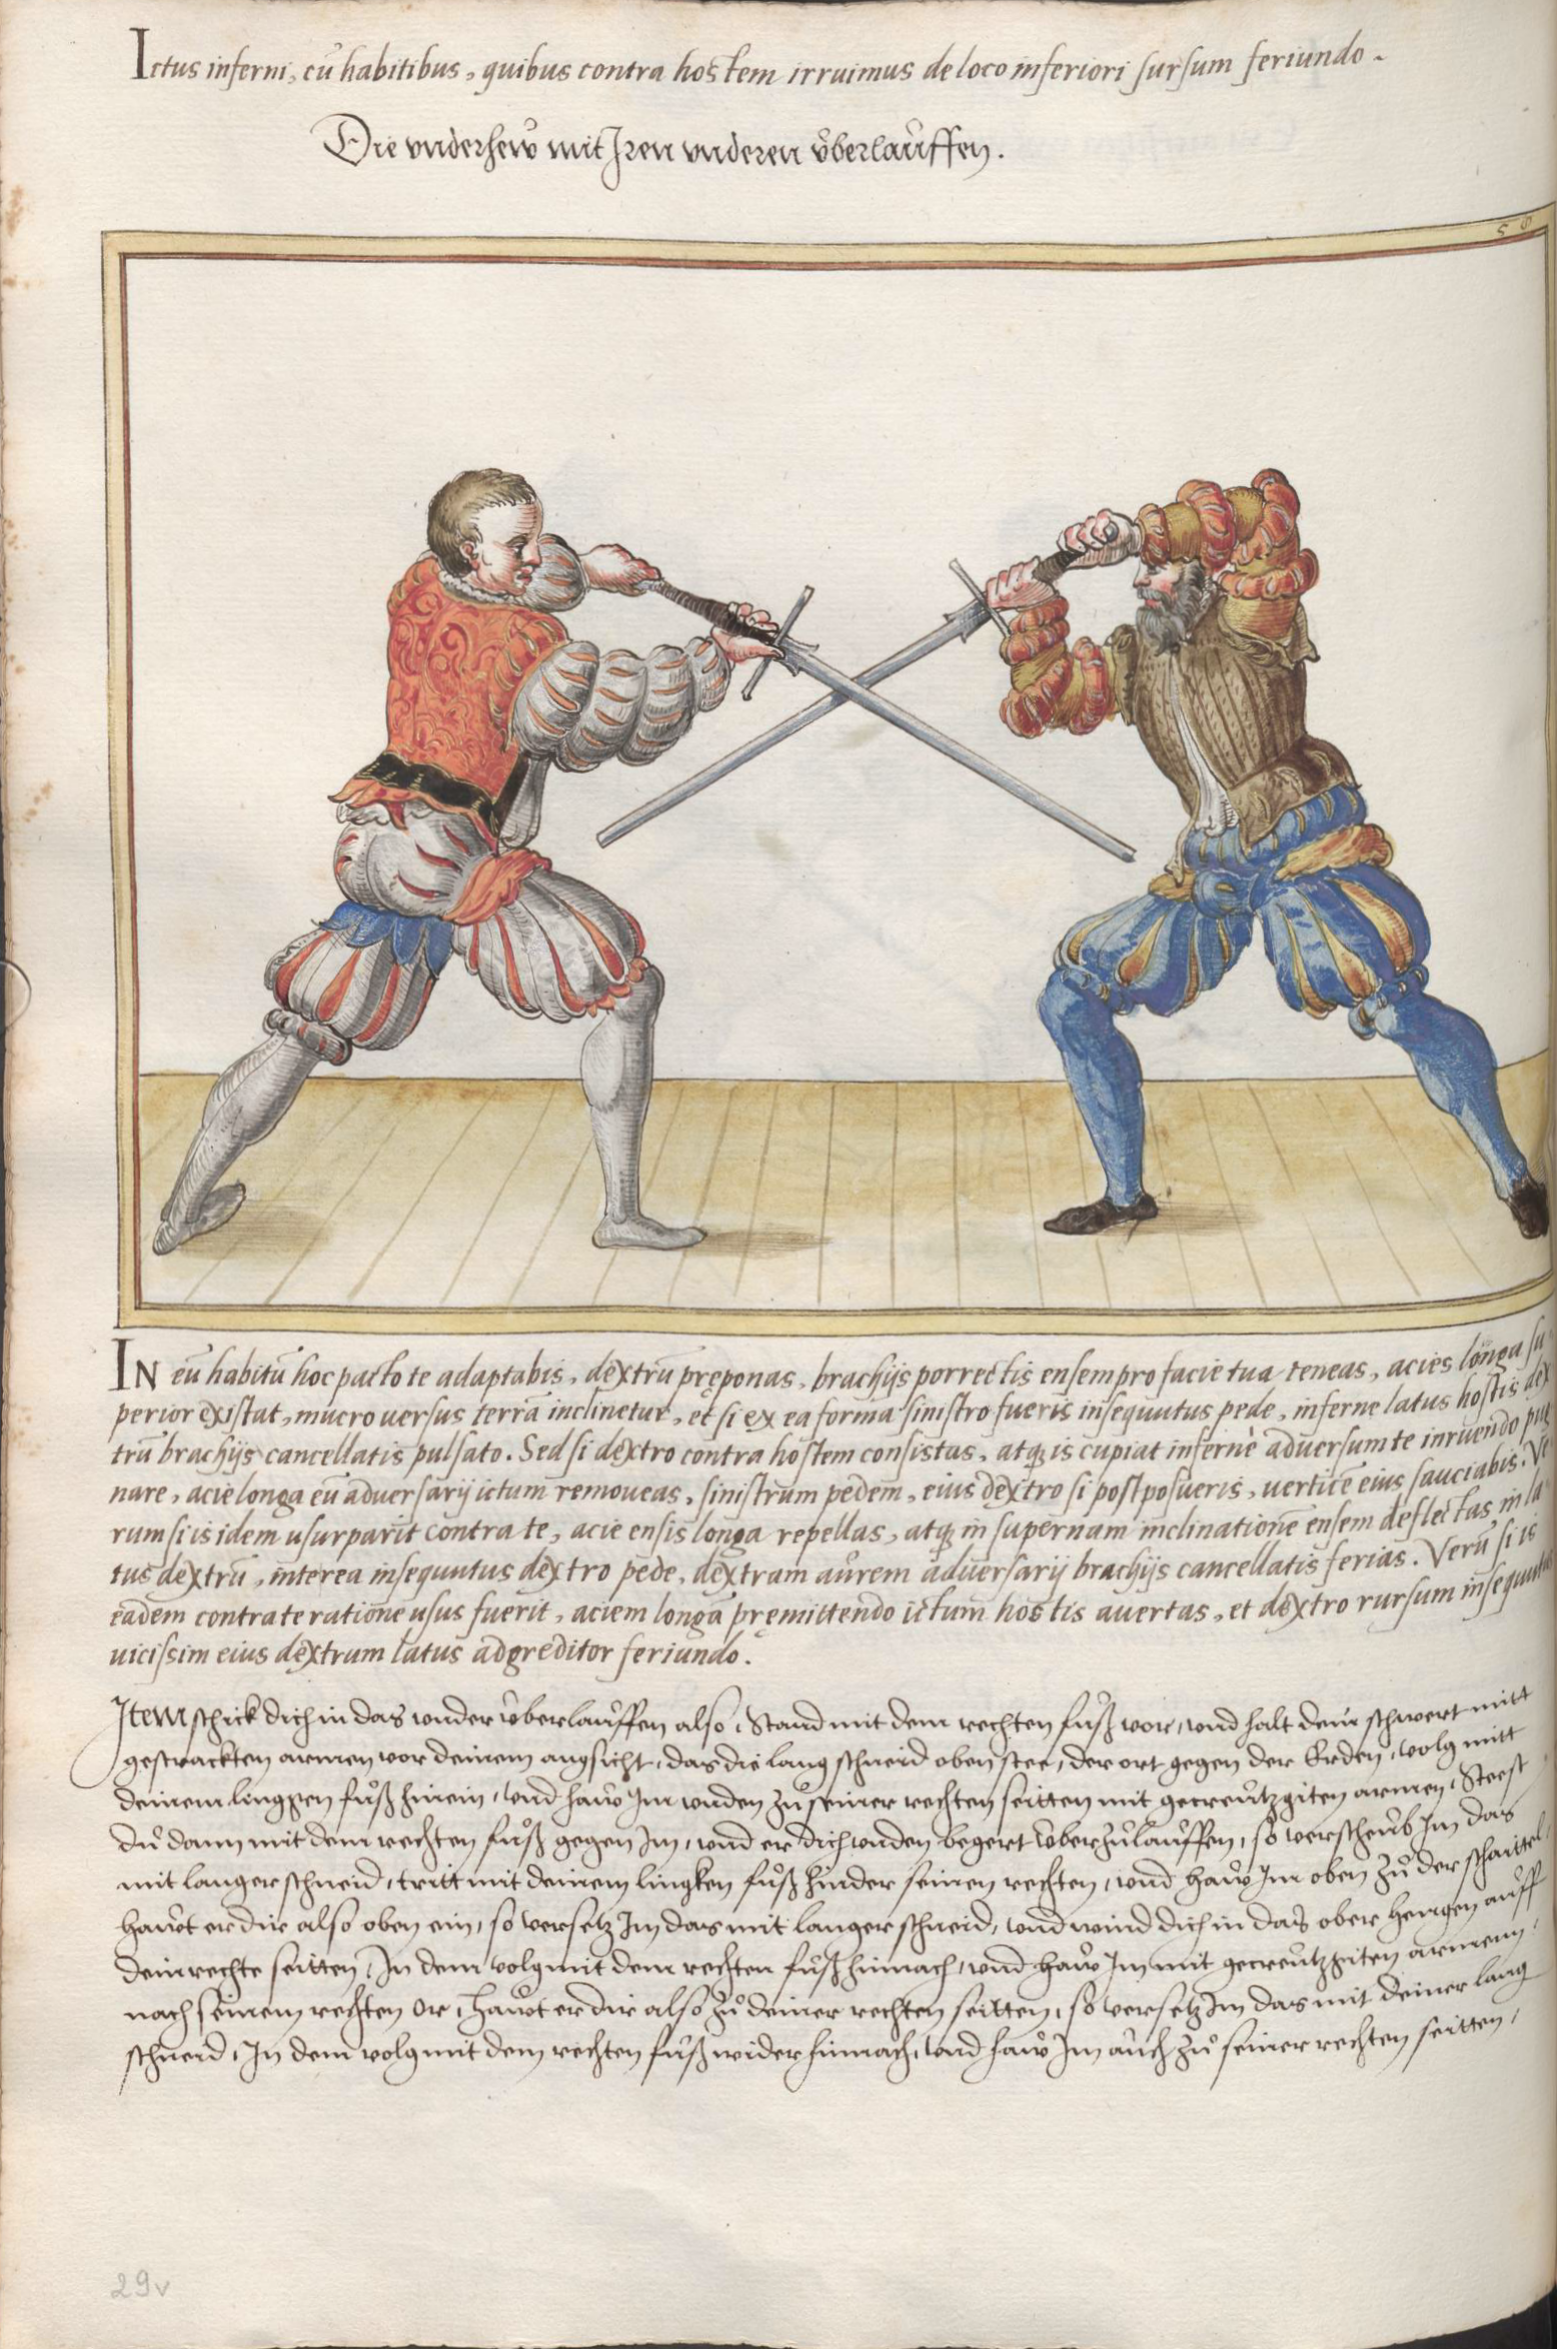 Ictus inferni, cū habitibus, quibus contra hostem irruimus de loco inferiori sursum feriundo.
Die vnderhew mit Iren vnderen vberlauffen.
58
IN eū habitū hoc pacto te adaptabis, dextrū pręponas, brachijs porrectis ensem pro facie tua teneas, acies longa su
perior existat, mucro uersus terrā inclinetur, et si ex ea forma sinistro fueris insequutus pede, inferne latus hostis dex
trū brachijs cancellatis pulsato. Sed si dextro contra hostem consistas, atq; is cupiat infernè aduersum te inruendo pug
nare, acie longa eū aduersarij ictum remoueas, sinistrum pedem, eius dextro si postposueris, uerticē eius sauciabis. Ve
rum si is idem usurparit contra te, acie ensis longa repellas, atq; in supernam inclinationē ensem deflectas in la
tus dextrū, interea insequutus dextro pede, dextram aurem aduersarij brachijs cancellatis ferias. Verū si is
eadem contra te ratione usus fuerit, aciem longā pręmittendo ictum hostis auertas, et dextro rursum insequutus
uicissim eius dextrum latus adgreditor feriundo.
Item schick dich in das vnder vberlauffen also, Stand mit dem rechten fuͦß vor, vnd halt dein schwert mitt
gestrackten armen vor deinem angsicht, das die lang schneid oben stee, der ort gegen der Erden, volg mitt
deinem linggen fuͦß hinein, vnd haw Im vnden zuͦ seiner rechten seitten mit gecreutzgiten armen, Steest
du dann mit dem rechten fuͦß gegen Im, vnd er dich vnden begert vberzulauffen, so verscheub Im das
mit langer schneid, tritt mit deinem lingken fuͦß hinder seinen rechten, vnd haw Im oben zuͦ der schaittel,
hawt er dir also oben ein, so versetz Im das mit langer schneid, vnd wind dich in das ober hengen auff
dein rechte seitten, In dem volg mit dem rechten fuͦß hinnach, vnd haw Im mit gecreutzgiten armenn,
nach seinem rechten Or, Hawt er dir also zuͦ deiner rechten seitten, so versetz Im das mit deiner lang
schneid, In dem volg mit dem rechten fuͦß wider hinnach, vnd haw Im auch zuͦ seiner rechten seitten,
29v